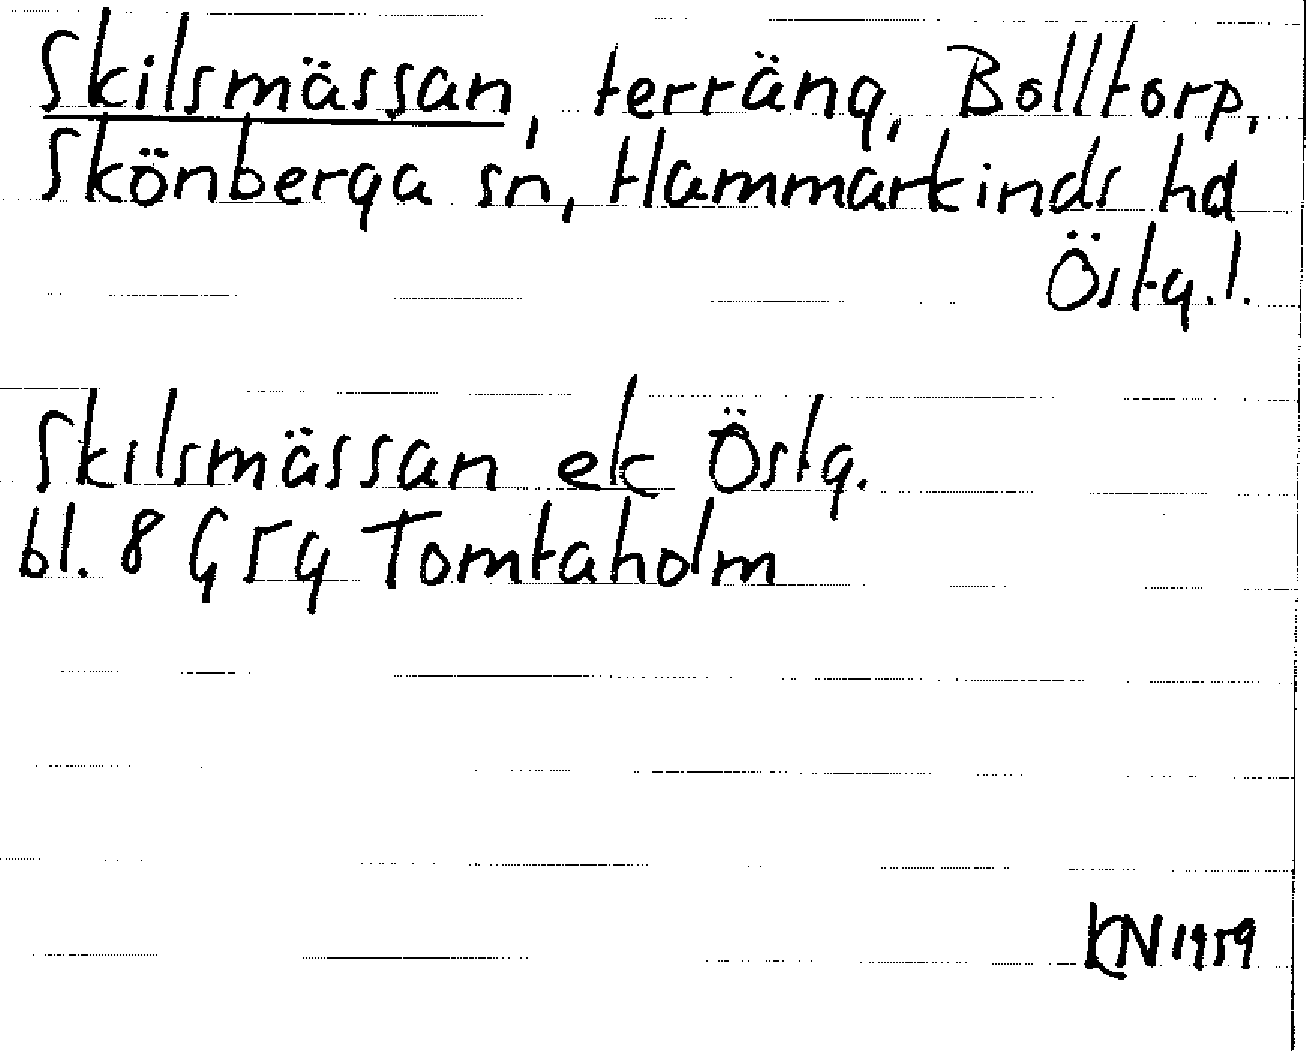 Skilsmässan, terräng, Bolltorp,
Skönberga sn, Hammarkinds hd
Östg.l.
Skilsmässan ek Östg.
bl. 8 G5g Tomtaholm
KN 1959